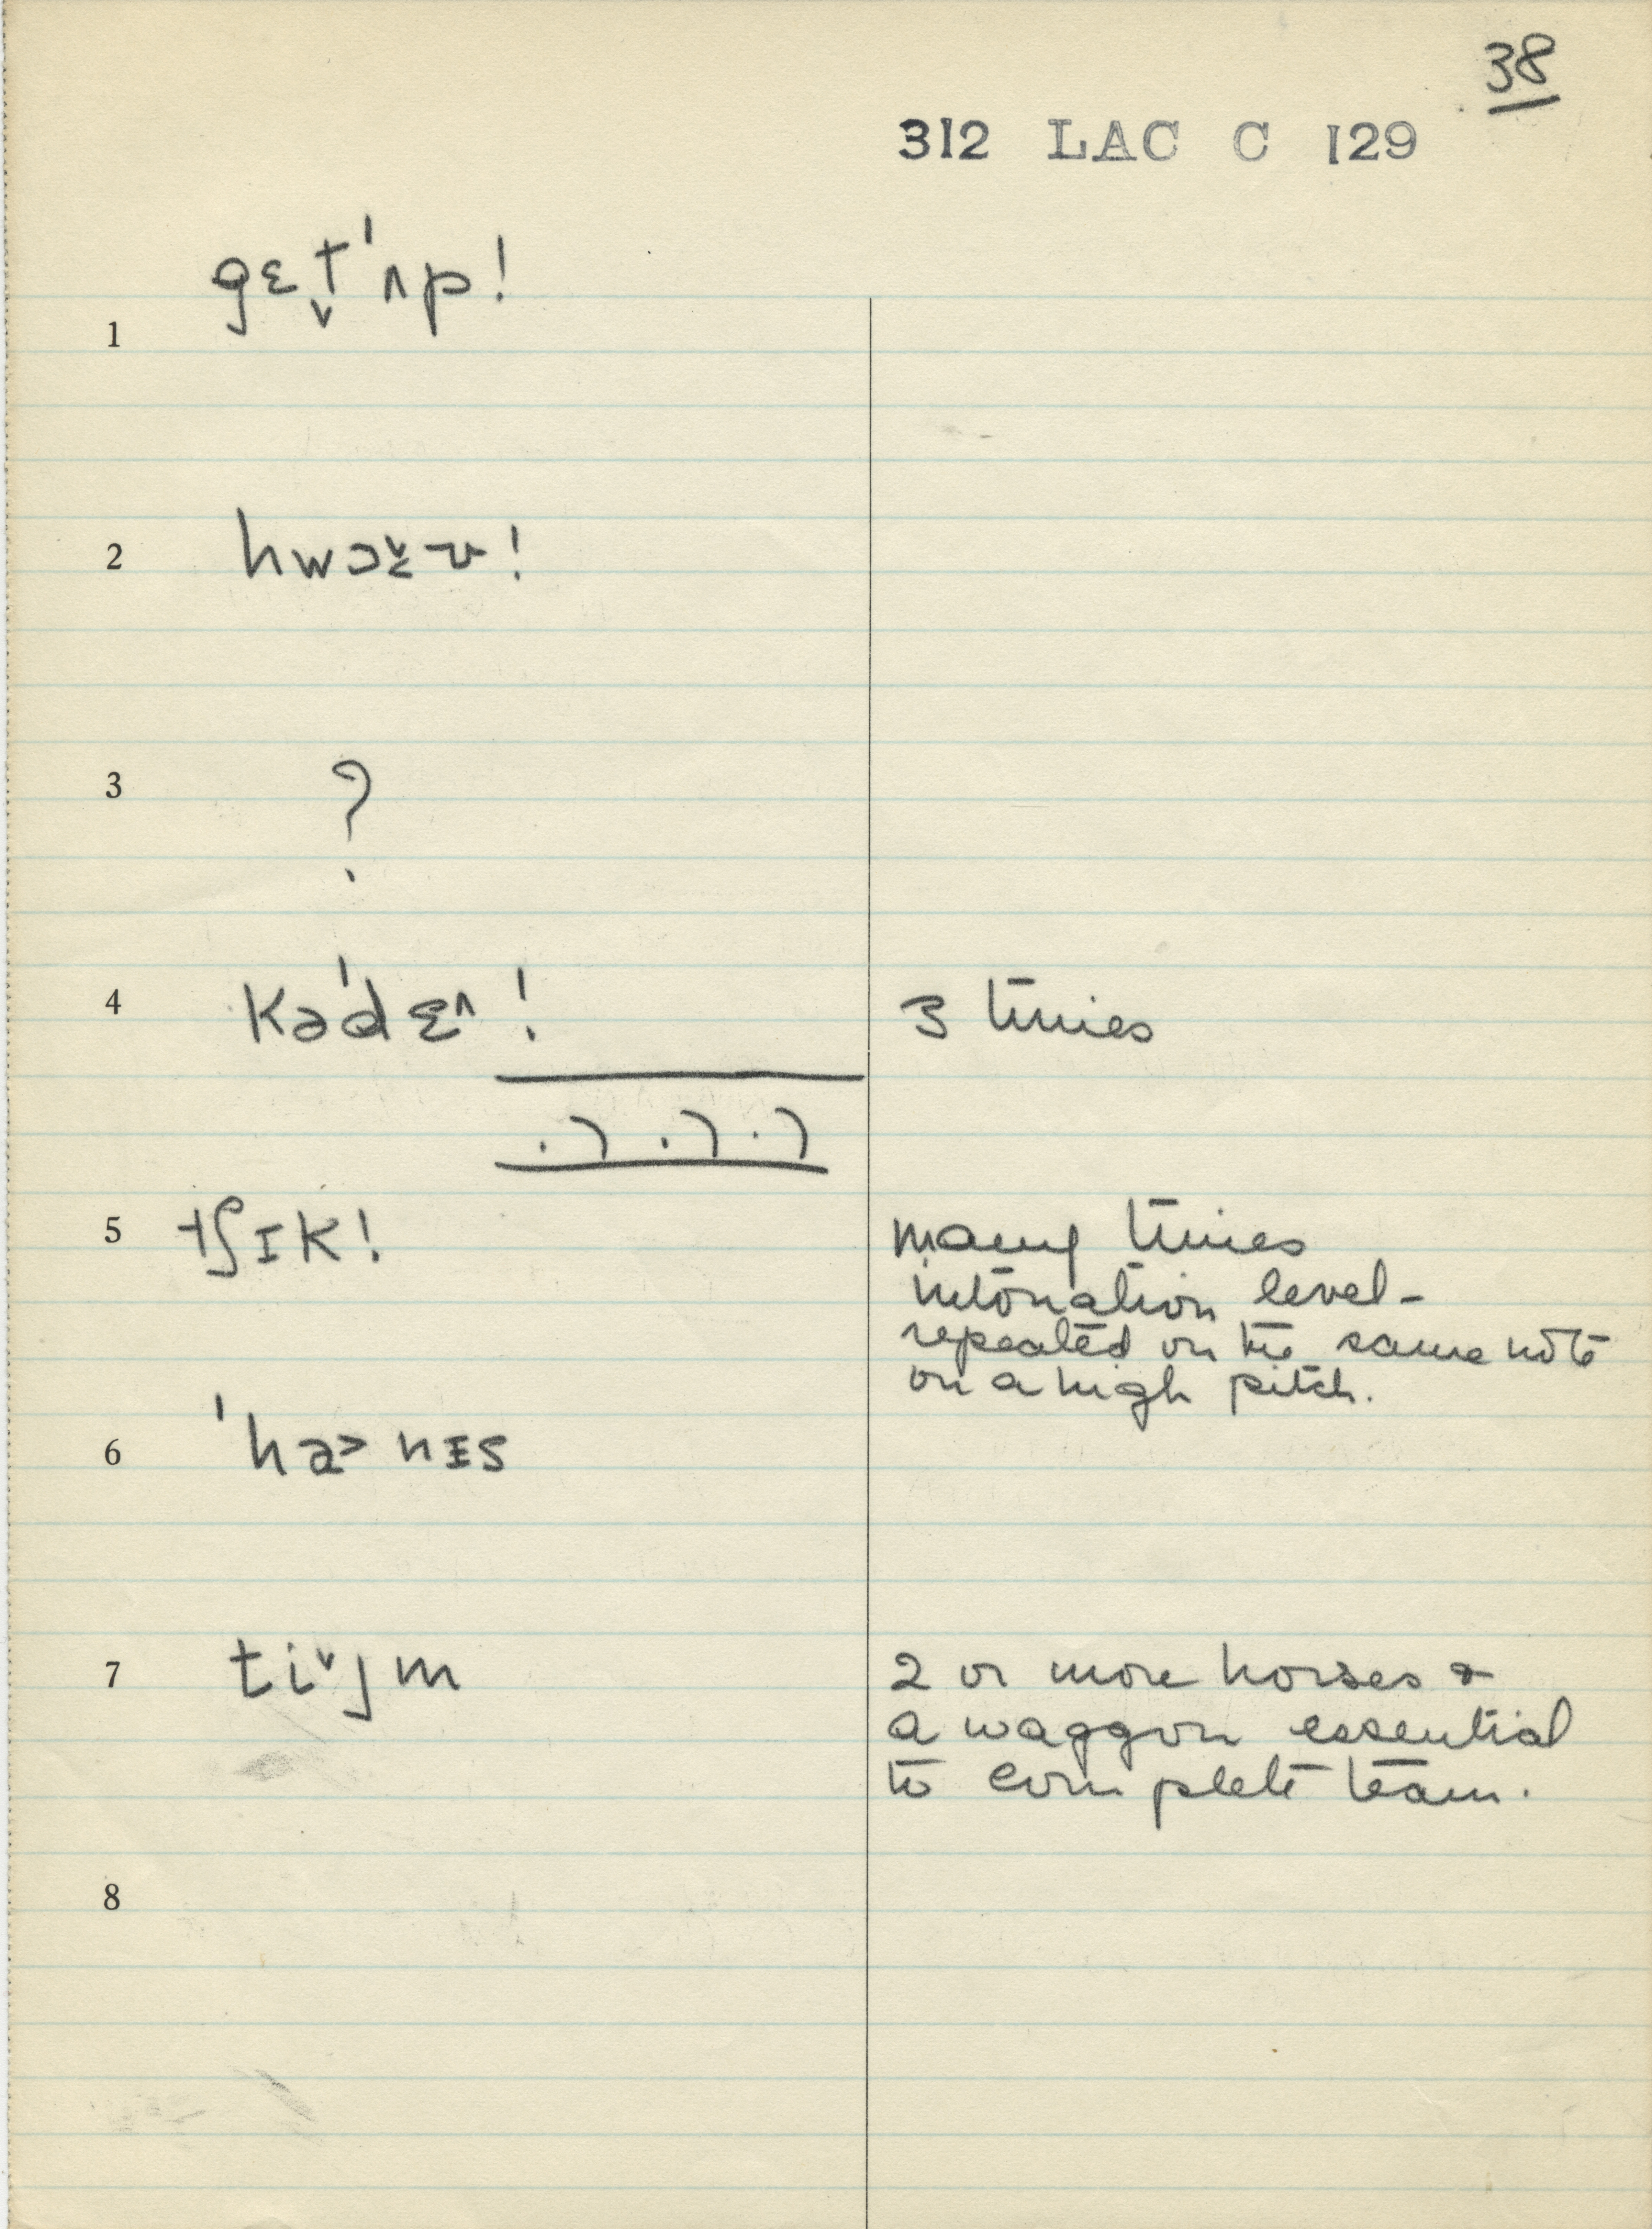 38
312 LAC C 129
1 gɛt̬ˈʌp!
2 hwɔɛ̬ʊ!
3 ?
4 kəˈdɛ^!
3 times
5 tʃɪk!
many times
intonation level-
repeated on the same note
on a high pitch.
6 ˈha> nɪs
7 tiˇjm
2 or more horses &
a waggon essential
to complete team.
8